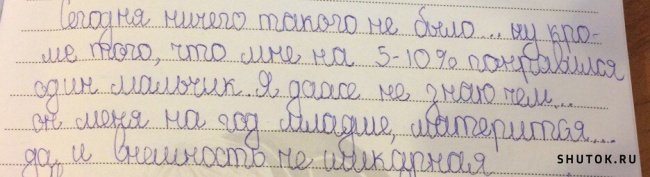 Сегодня ничего такого не было... ну кро-
ме того, что мне на 5-10% понравился
один мальчик. Я даже не знаю чем...
он меня на год младше, матерится...
да и внешность не шикарная
SHUTOK.RU